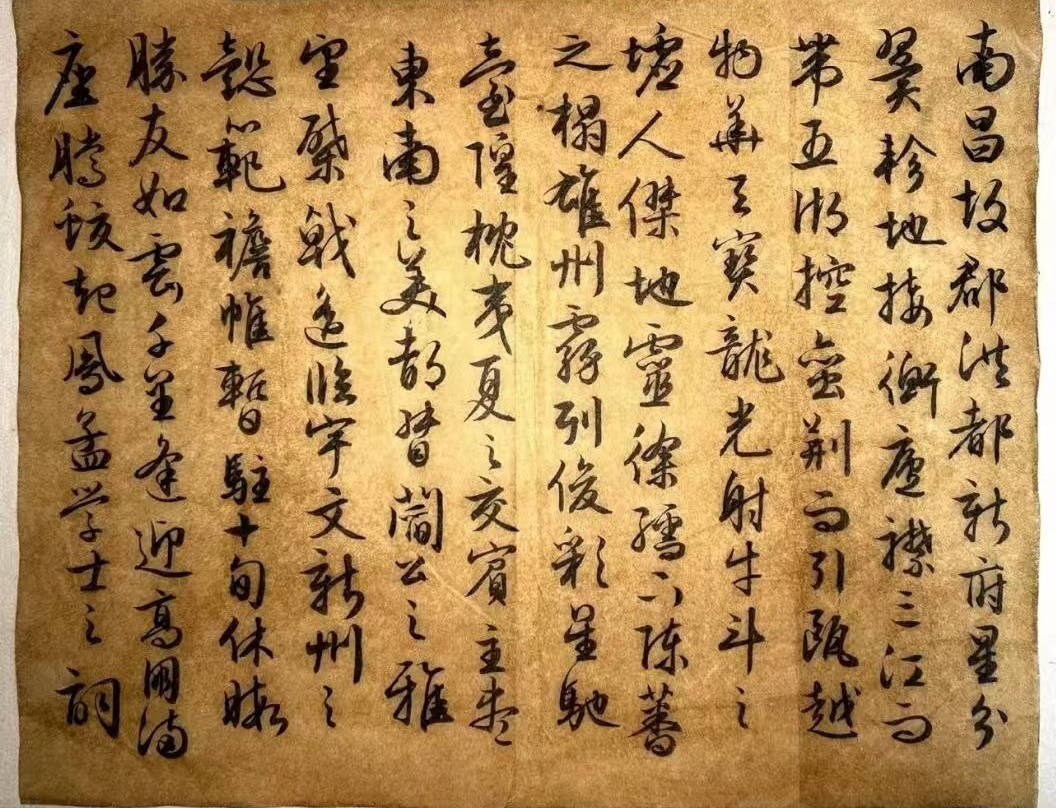 南昌故郡洪都新府星分
翼軫地接衡廬襟三江而
帶五湖控蠻荊而引甌越
物華天寶龍光射牛斗之
墟人傑地靈徐孺下陳蕃
之榻雄州霧列俊彩星馳
臺隍枕夷夏之交賓主盡
東南之美都督閻公之雅
望棨戟遙臨宇文新州之
懿範襜帷暫駐十旬休暇
勝友如雲千里逢迎高朋滿
座騰蛟起鳳孟学士之詞